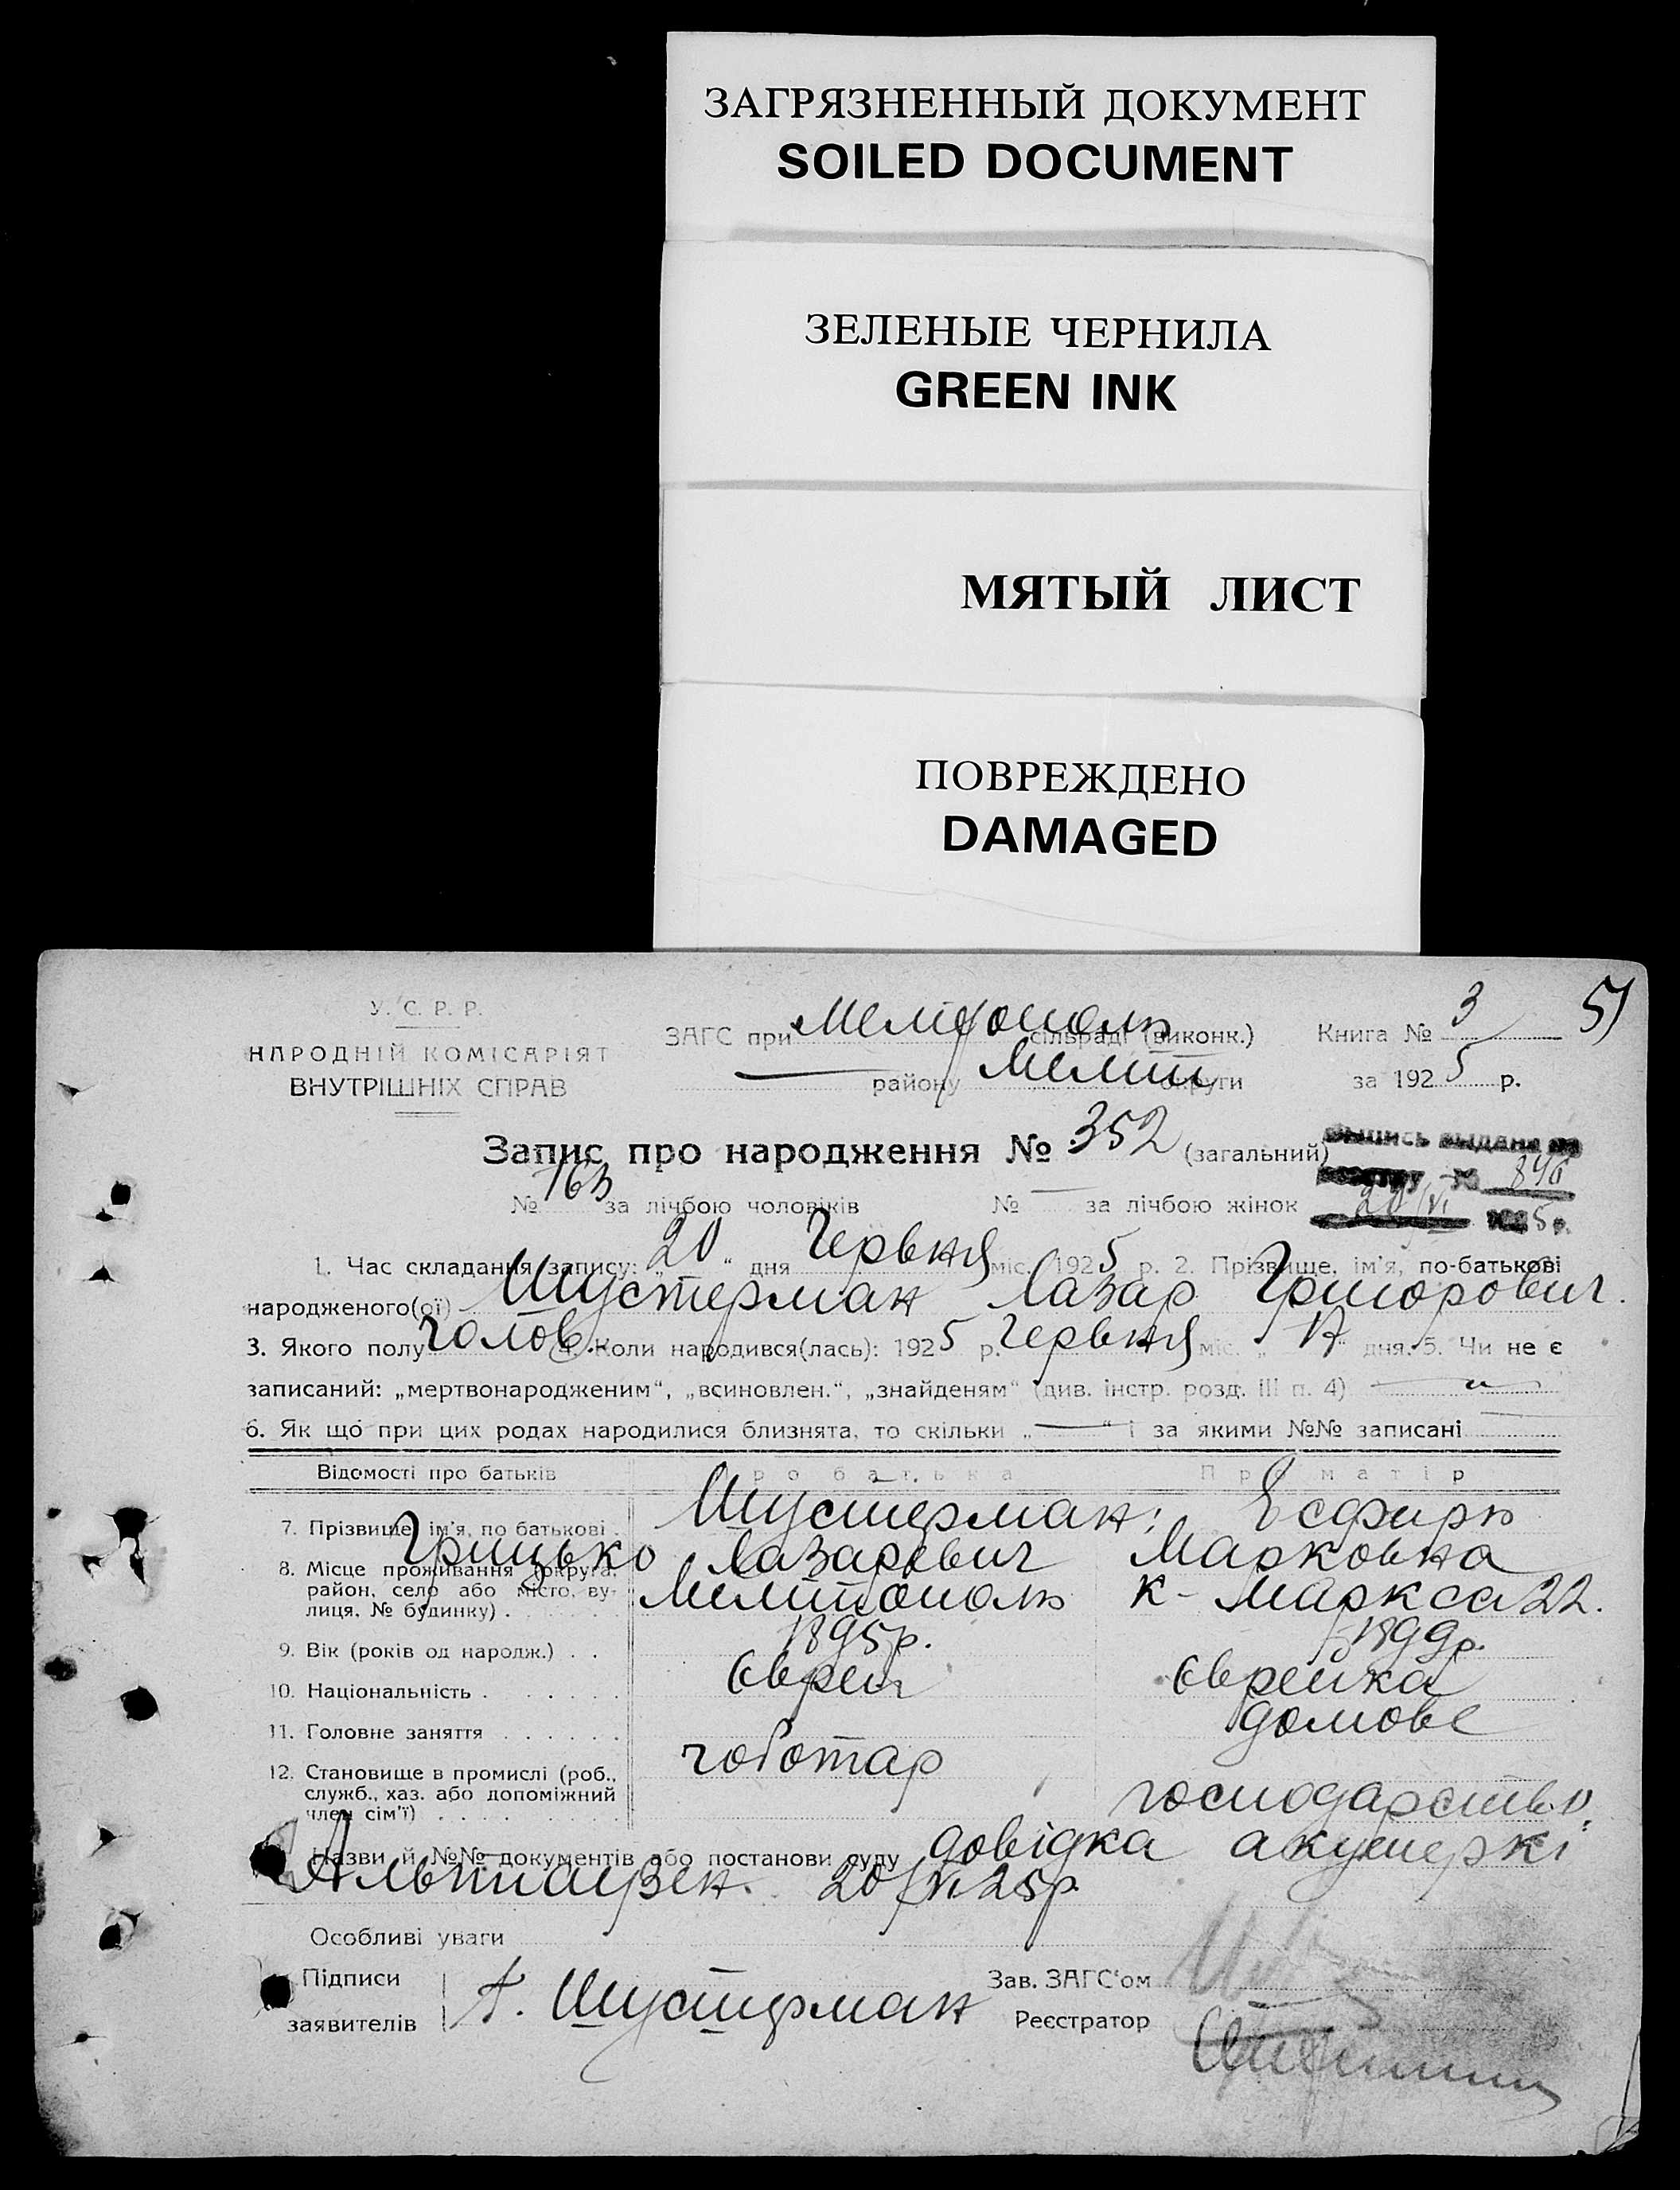 ЗАГРЯЗНЕННЫЙ ДОКУМЕНТ
SOILED DOCUMENT
ЗЕЛЕНЫЕ ЧЕРНИЛА
GREEN INK
МЯТЫЙ ЛИСТ
ПОВРЕЖДЕНО
DAMAGED
51
У. С. Р. Р.
НАРОДНІЙ КОМІСАРІЯТ
ВНУТРІШНІХ СПРАВ
ЗАГС при Мелітополь сільраді (виконк.) Книга № 3
району Меліт округи за 1925 р.
Запис про народження № 352 (загальний)
Выпись выдана по
реестру № 846
20/VI 1925 р.
№ 163 за лічбою чоловіків № — за лічбою жінок
1. Час складання запису: „20“ дня Червня міс. 1925 р. 2. Прізвище, ім'я, по-батькові
народженого(ої) Шустерман Лазар Григорович.
3. Якого полу чолов. 4. Коли народився(лась): 1925 р. Червня міс. „17“ дня. 5. Чи не є
записаний: „мертвонародженим“, „всиновлен.“, „знайденям“ (див. інстр. розд. III п. 4)
6. Як що при цих родах народилися близнята, то скільки „—“ і за якими №№ записані
Відомості про батьків Про батька Про матір
7. Прізвище, ім'я, по батькові . Шустерман: Есфирь
Грицько Лазаревич Марковна
8. Місце проживання (округа,
район, село або місто, ву-
лиця, № будинку) . Мелітополь К-Маркса 22.
9. Вік (років од народж.) . . 1895р. 1899р.
10. Національність . Єврей Єврейка
11. Головне заняття чоботар домове
12. Становище в промислі (роб.,
служб., хаз. або допоміжний
член сім'ї) господарство
Назви й №№ документів або постанови суду довідка акушеркі
Альтгаузен. 20/VI 25р.
Особливі уваги
Підписи
заявителів Г. Шустерман
Зав. ЗАГС'ом
Реєстратор